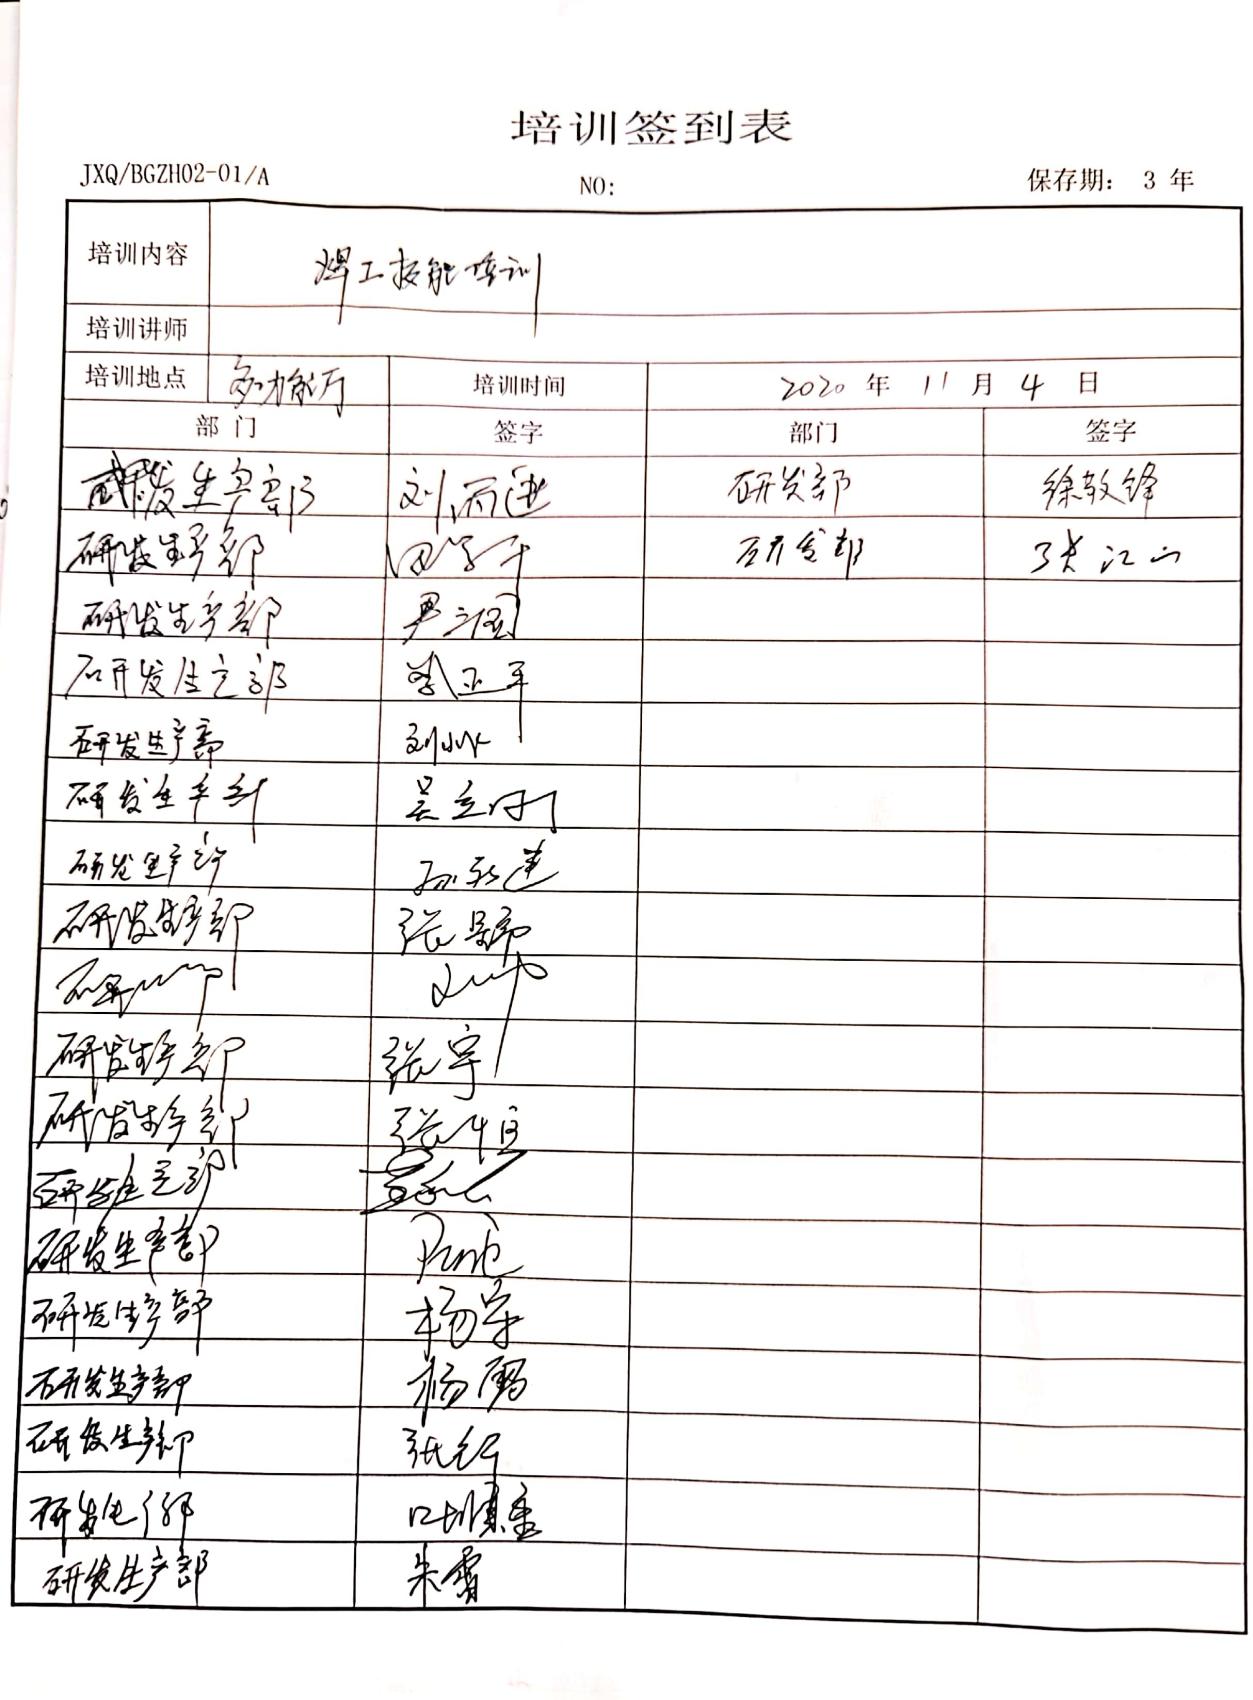 培训签到表
JXQ/BGZH02-01/A NO: 保存期： 3 年
培训内容 焊工技能培训
培训讲师
培训地点 多功能厅 培训时间 2020 年 11 月 4 日
部 门 签字 部门 签字
研发生产部 刘 研发部 徐敏锋
研发生产部 田学平 研发部 张江山
研发生产部 尹立国
研发生产部 李亚军
研发生产部 刘小冰
研发生产部 吴立刚
研发生产部 孙
研发生产部 张
研发 部
研发生产部 张宇
研发生产部 张恒
研发生产部
研发生产部
研发生产部 杨军
研发生产部 杨
研发生产部 张
研发生产部
研发生产部 朱雷